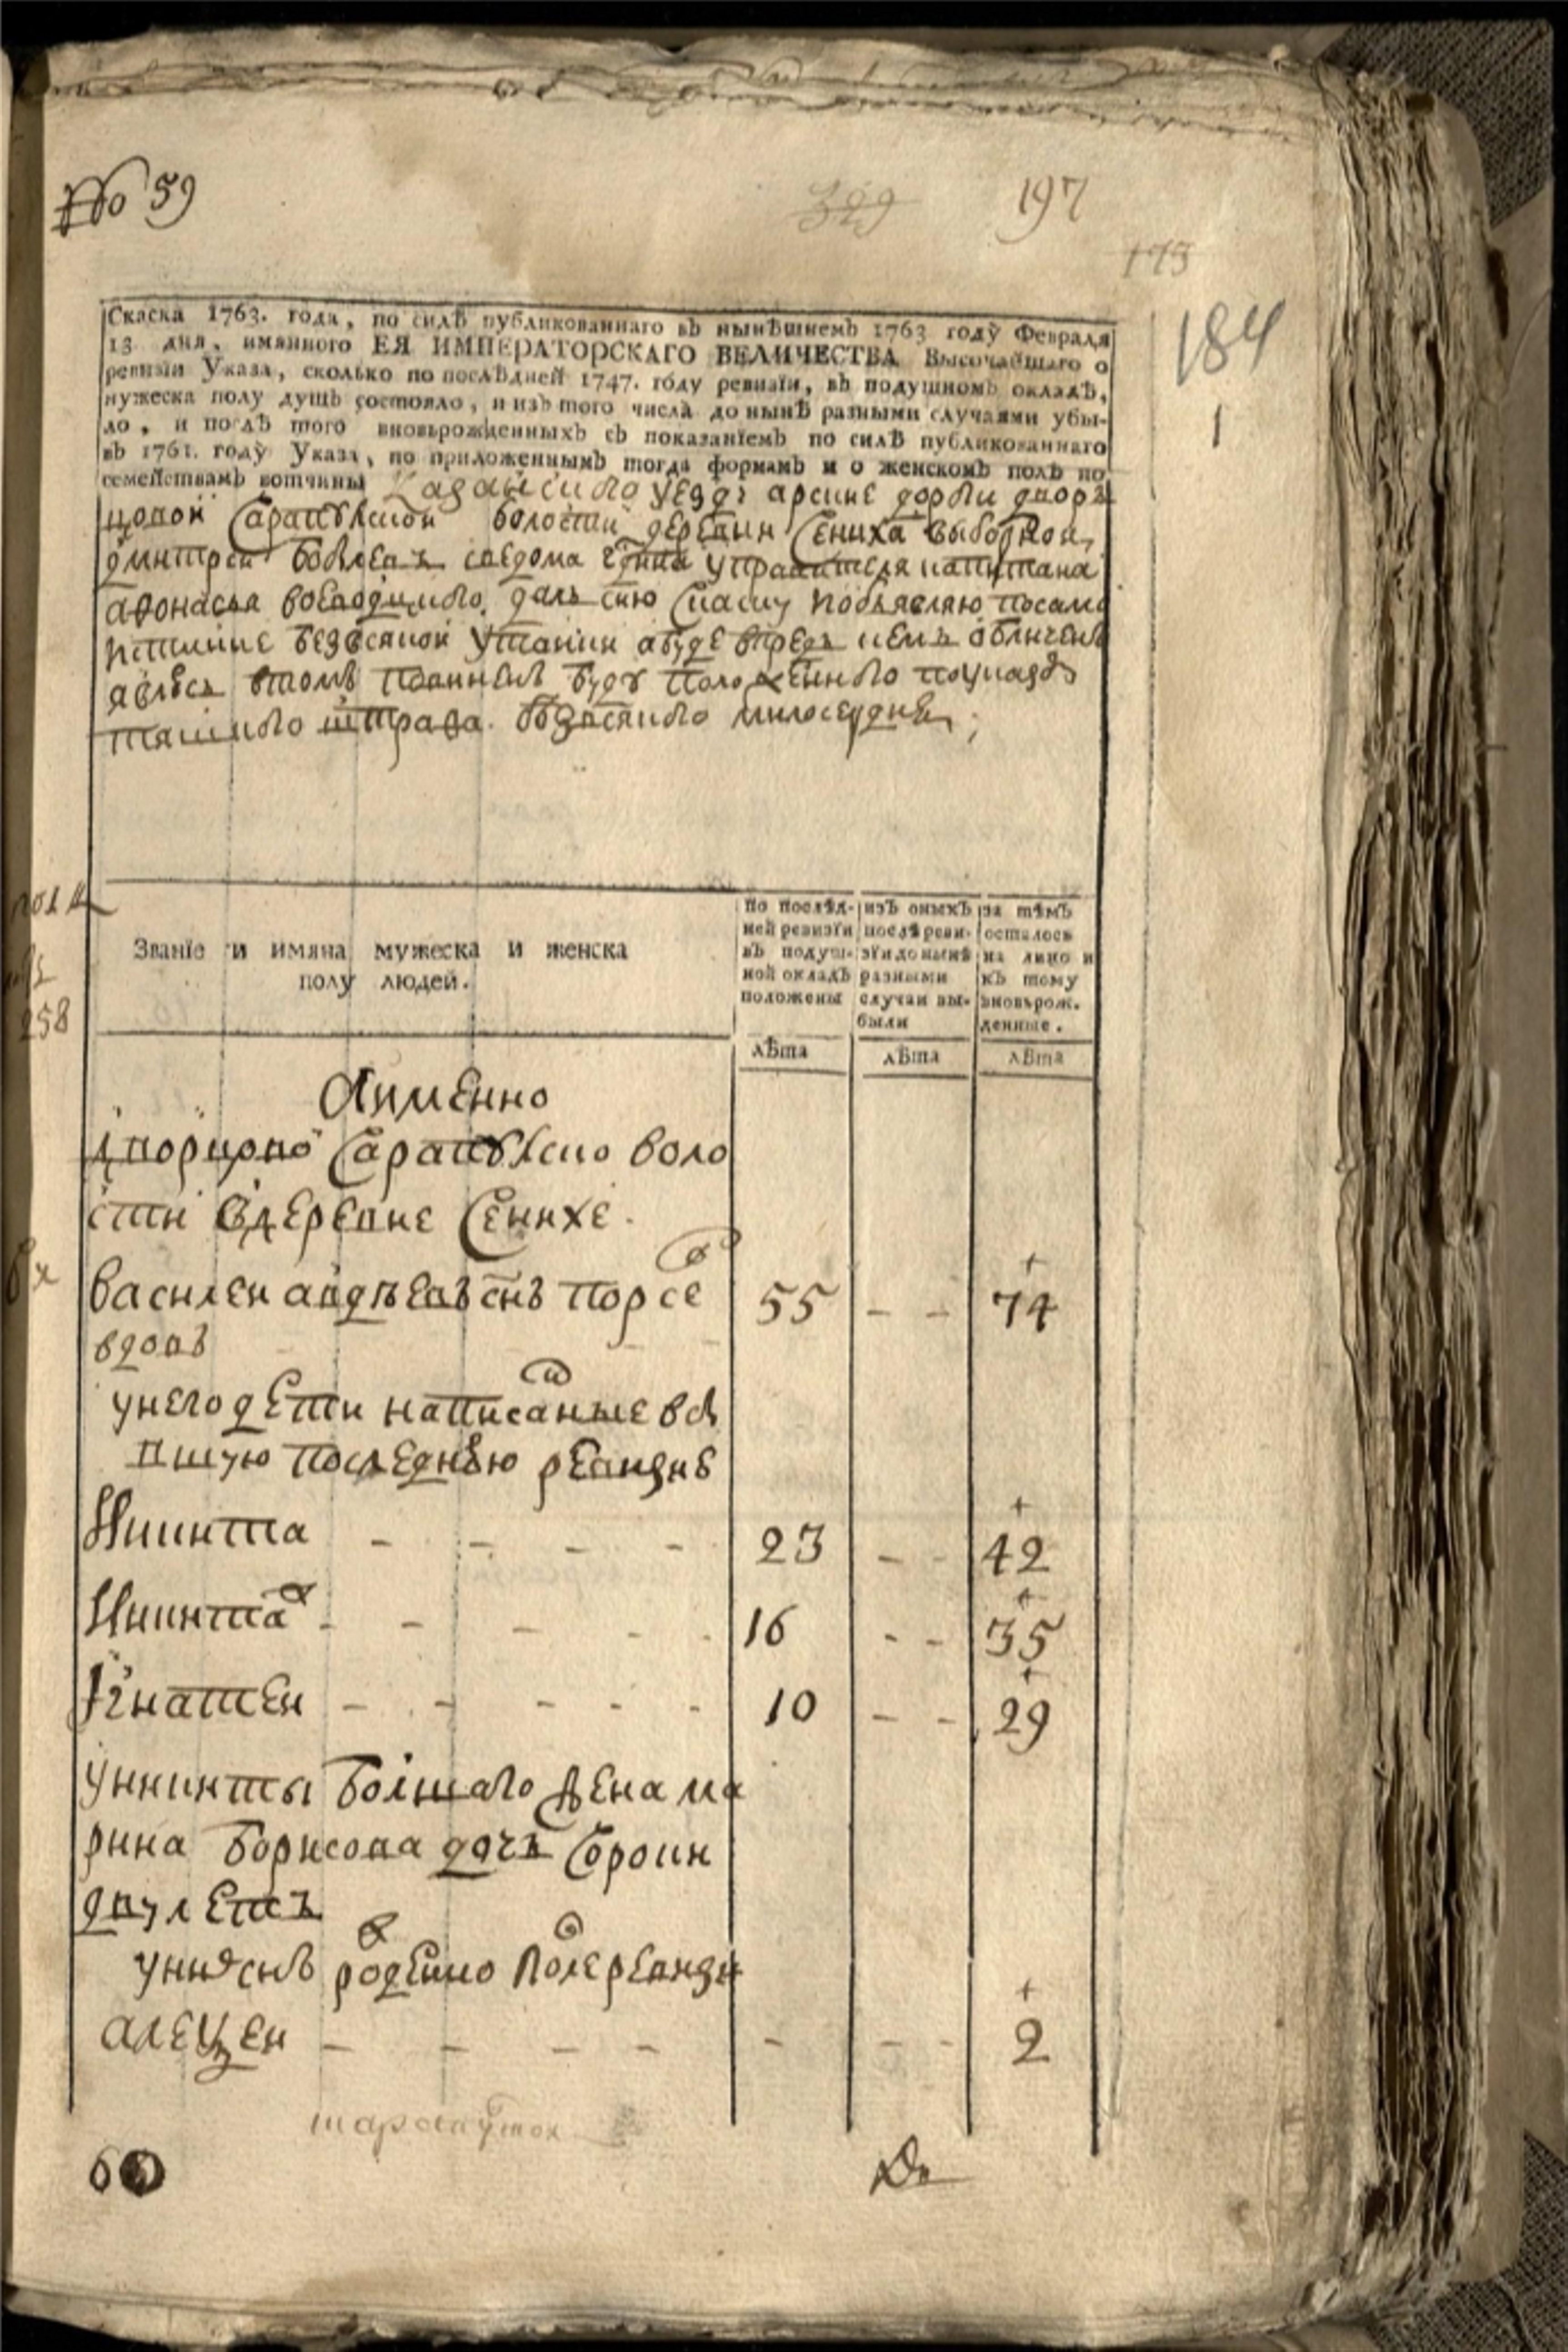 No 59
329
197
173
184
1
Скаска 1763. года, по силѣ публикованнаго въ нынѣшнемъ 1763 году Февраля
13 дня, имяннаго ЕЯ ИМПЕРАТОРСКАГО ВЕЛИЧЕСТВА Высочайшаго о
ревизїи Указа, сколько по послѣдней 1747. году ревизїи, въ подушномъ окладѣ,
мужеска полу душъ состояло, и изъ того числа до нынѣ разными случаями убы-
ло, и послѣ того вновьрожденныхъ съ показанїемъ по силѣ публикованнаго
въ 1761. году Указа, по приложеннымъ тогда формамъ и о женскомъ полѣ по
семействамъ вотчины Казанского уезду арские дороги двор
цовой Сарапулской волости деревни Сениха выборной
дмитрей с ведома управителя капитана
афонасья дал сию скаску и объявляю по самой
истинне без всякой утайки а буде впредь кем обличенъ
явлюсь в томъ повиненъ буду положенного по указу
тяшкого штрафа без всякого милосердия;
258
Званїе и имяна мужеска и женска
полу людей.
по послѣд-
ней ревизїи
въ подуш-
ной окладъ
положены
изъ оныхъ
послѣ реви-
зїи до нынѣ
разными
случаи вы-
были
за тѣмъ
осталось
на лицо и
къ тому
вновьрож.
денные.
лѣта
лѣта
лѣта
Аименно
дворцово Сарапулско воло
сти в деревне Сенихе.
василеи сн 55 - - 74
вдовъ
у него дети написаные в
пшую последнюю ревизию
Никита - - - - 23 - - 42
Никита - - - - 16 - - 35
Игнатеи - - - - 10 - - 29
у никиты болшаго жена ма
рина борисова дочь сорок
дву летъ
у них снъ
алеѯеи - - - - - - - 2
60